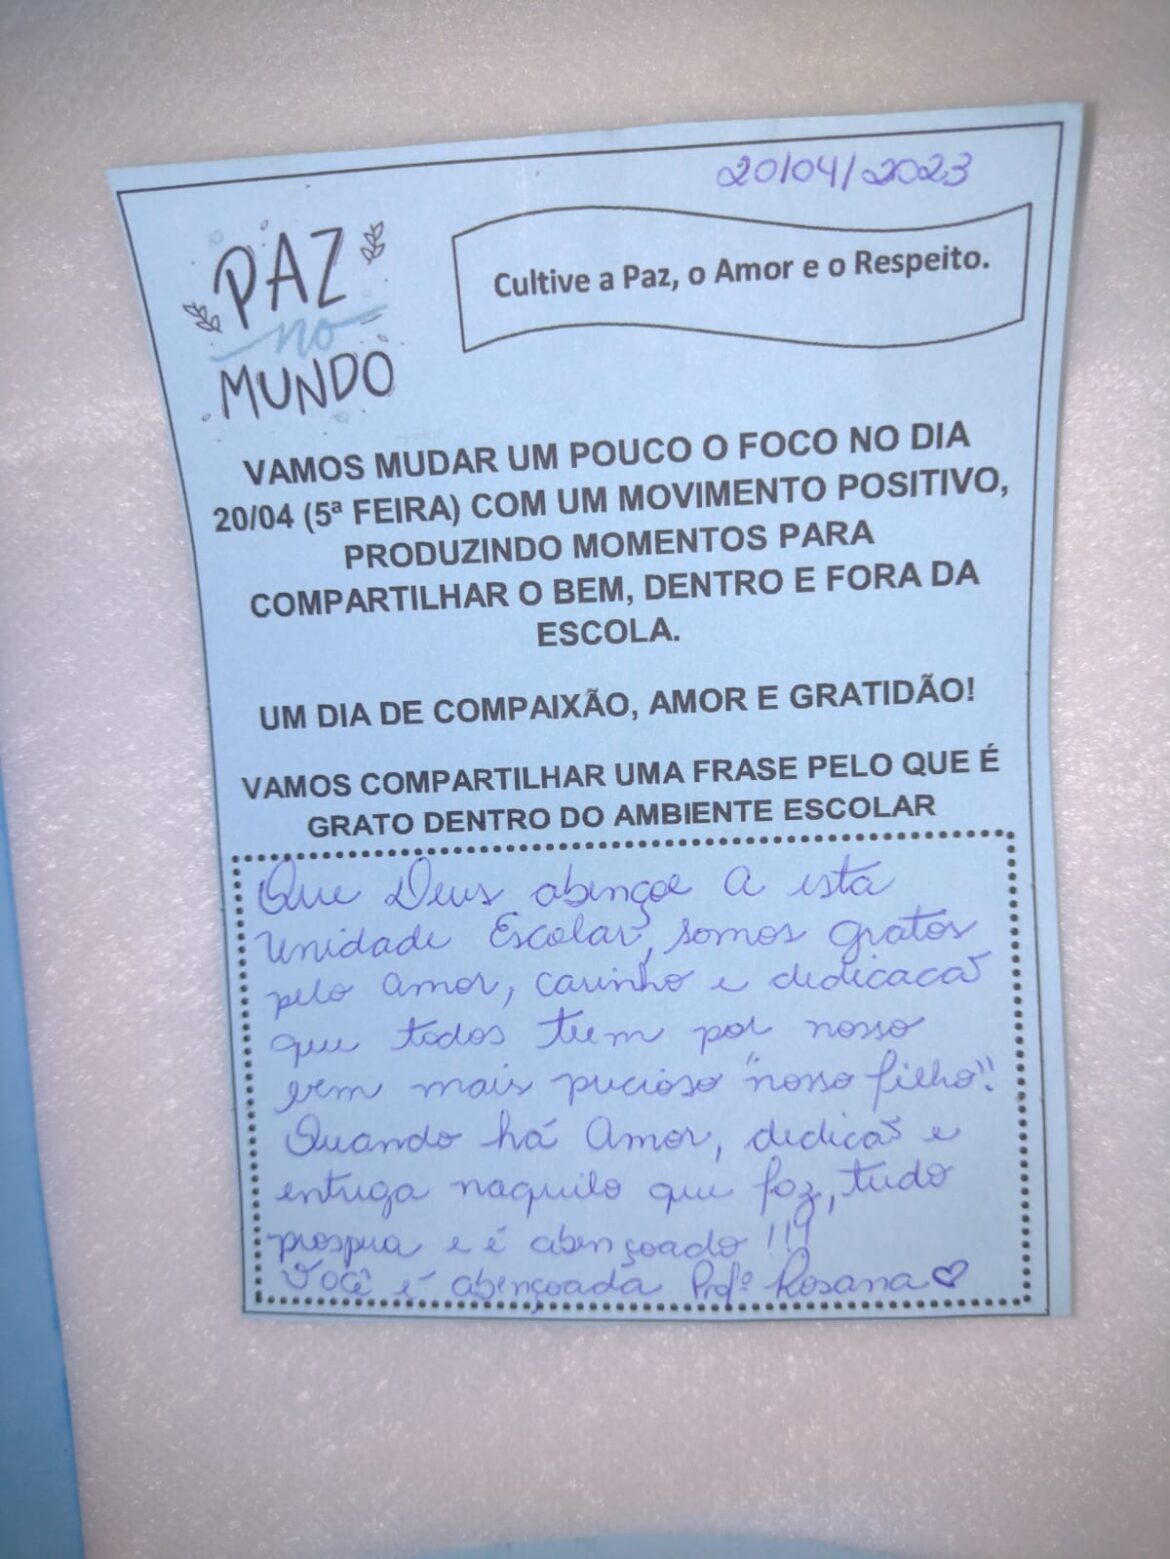 20/04/2023
PAZ
no
MUNDO
Cultive a Paz, o Amor e o Respeito.
VAMOS MUDAR UM POUCO O FOCO NO DIA
20/04 (5ª FEIRA) COM UM MOVIMENTO POSITIVO,
PRODUZINDO MOMENTOS PARA
COMPARTILHAR O BEM, DENTRO E FORA DA
ESCOLA.
UM DIA DE COMPAIXÃO, AMOR E GRATIDÃO!
VAMOS COMPARTILHAR UMA FRASE PELO QUE É
GRATO DENTRO DO AMBIENTE ESCOLAR
Que Deus abençoe a esta
Unidade Escolar, somos gratos
pelo amor, carinho e dedicacã
que todos tem por nosso
bem mais precioso "nosso filho"!
Quando há Amor, dedicaã e
entrega naquilo que faz, tudo
prospera e é abençoado !!!
Você é abençoada Profª Rosana ♡